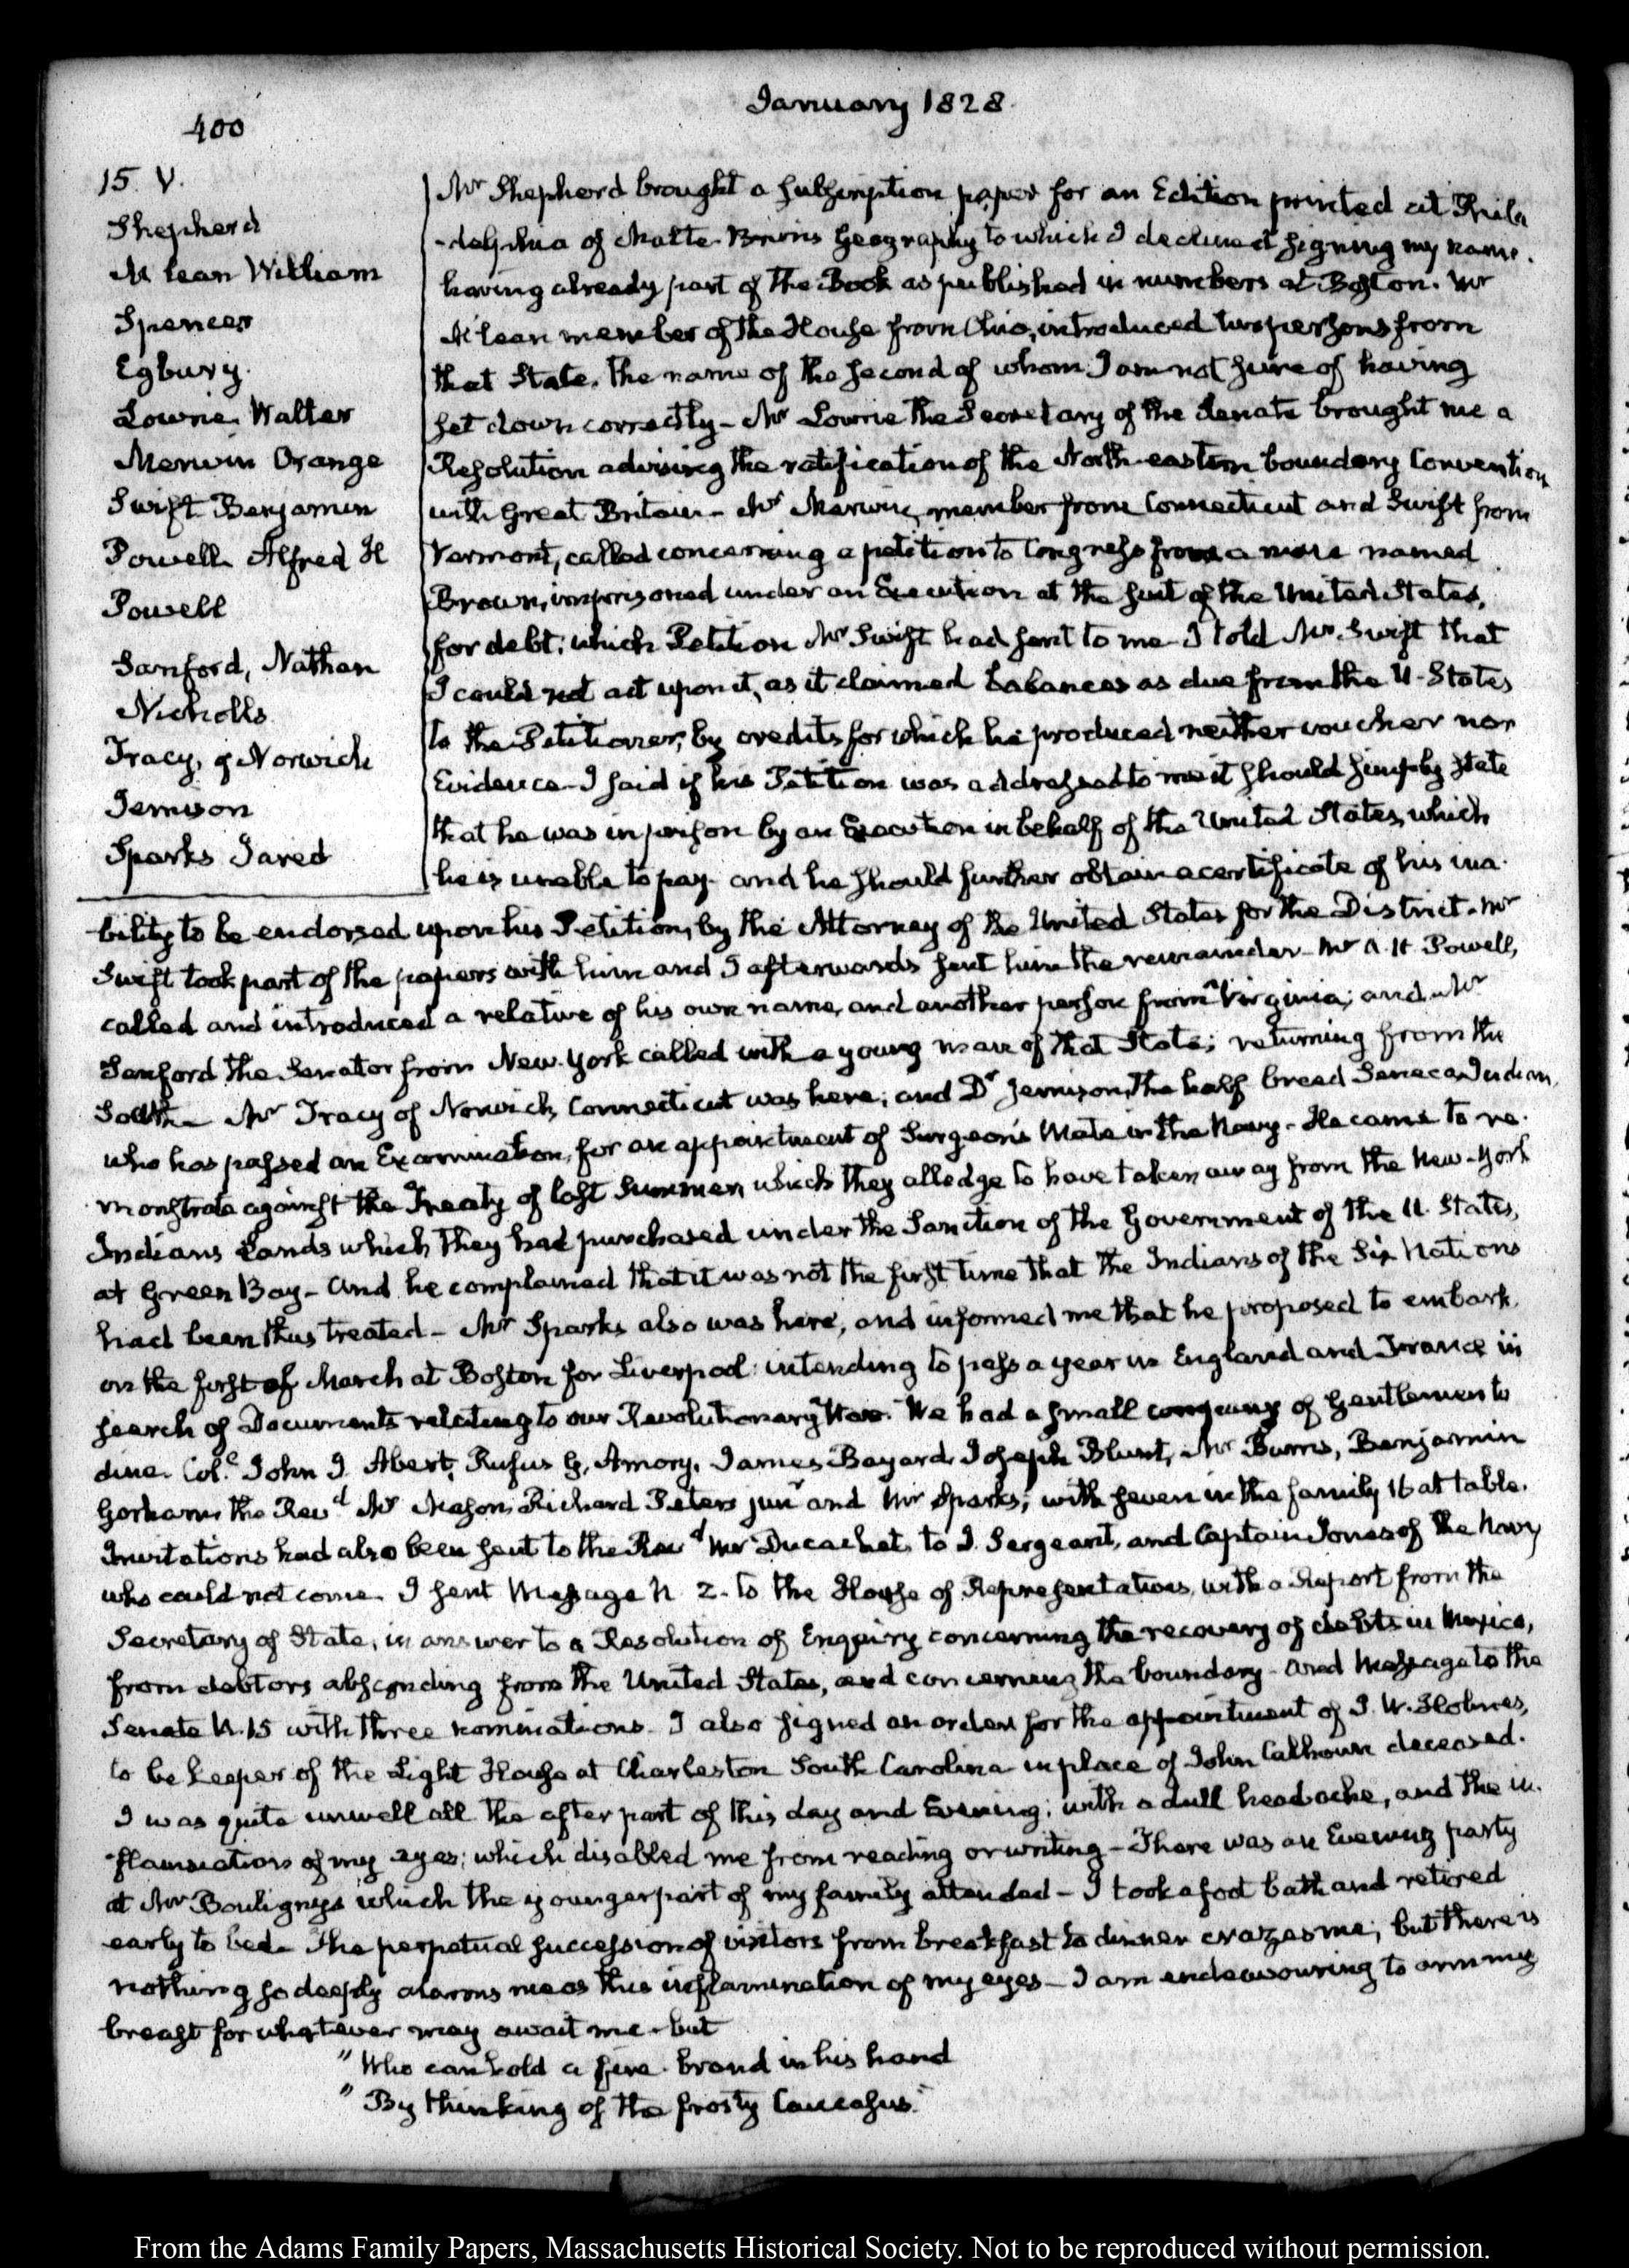 January 1828.
400
15. V.
Shepherd
McLean William
Spencer
Egbury.
Lowrie Walter
Merwin Orange
Swift Benjamin
Powell Alfred H
Powell
Sanford, Nathan
Nicholls
Tracy, of Norwich
Jemison
Sparks Jared
Mr Shepherd brought a subscription paper for an Edition printed at Phila
-delphia of Malte-Brun's Geography to which I declined signing my name.
having already part of the Book as published in numbers at Boston. Mr
McLean member of the House from Ohio, introduced two persons from
that State. the name of the second of whom I am not sure of having
set down correctly - Mr Lowrie the Secretary of the Senate brought me a
Resolution advising the ratification of the North-eastern boundary Convention
with Great Britain - Mr Merwin, member from Connecticut and Swift from
Vermont, called concerning a petition to Congress from a man named
Brown, imprisoned under an Execution at the suit of the United States,
for debt; which Petition Mr Swift had sent to me - I told Mr Swift that
I could not act upon it, as it claimed balances as due from the U. States
to the Petitioner, by credits for which he produced neither voucher nor
Evidence - I said if his Petition was addressed to me it should simply state
that he was in prison by an Execution in behalf of the United States, which
he is unable to pay - and he should further obtain a certificate of his ina-
bility to be endorsed upon his Petition, by the Attorney of the United States for the District. Mr
Swift took part of the papers with him and I afterwards sent him the remainder - Mr A. H. Powell,
called and introduced a relative of his own name, and another person from Virginia; and Mr
Sanford the Senator from New York called with a young man of that State; returning from the
South - Mr Tracy of Norwich, Connecticut was here; and Dr Jemison, the half breed Seneca Indian,
who has passed an Examination, for an appointment of Surgeon's Mate in the Navy - He came to re-
monstrate against the Treaty of last Summer, which they alledge to have taken away from the New-York
Indians Lands which they had purchased under the Sanction of the Government of the U. States,
at Green Bay - and he complained that it was not the first time that the Indians of the Six Nations
had been thus treated - Mr Sparks also was here, and informed me that he proposed to embark
on the first of March at Boston for Liverpool: intending to pass a year in England and France in
search of Documents relating to our Revolutionary War. We had a small company of Gentlemen to
dine. Col.l John J. Abert, Rufus G. Amory, James Bayard, Joseph Blunt, Mr Burns, Benjamin
Gorham, the Revd Mr Mason, Richard Peters junr and Mr Sparks; with seven in the family 16 at table.
Invitations had also been sent to the Revd Mr Ducachet, to J. Sergeant, and Captain Jones of the Navy
who could not come. I sent Message N. 2. to the House of Representatives, with a Report from the
Secretary of State, in answer to a Resolution of Enquiry concerning the recovery of debts in Mexico,
from debtors absconding from the United States, and concerning the boundary - and Message to the
Senate N. 15 with three nominations. I also signed an order for the appointment of J. W. Holmes,
to be keeper of the Light House at Charleston South Carolina in place of John Calhoun deceased.
I was quite unwell all the after part of this day and Evening; with a dull head-ache, and the in-
flammation of my eyes; which disabled me from reading or writing - There was an Evening party
at Mr Bouligny's which the younger part of my family attended - I took a foot bath and retired
early to bed. The perpetual succession of visitors from breakfast to dinner crazes me; but there is
nothing so deeply alarms me as this inflammation of my eyes - I am endeavouring to arm my
breast for whatever may await me - but
"Who can hold a fire-brand in his hand
"By thinking of the frosty Caucasus."
From the Adams Family Papers, Massachusetts Historical Society. Not to be reproduced without permission.